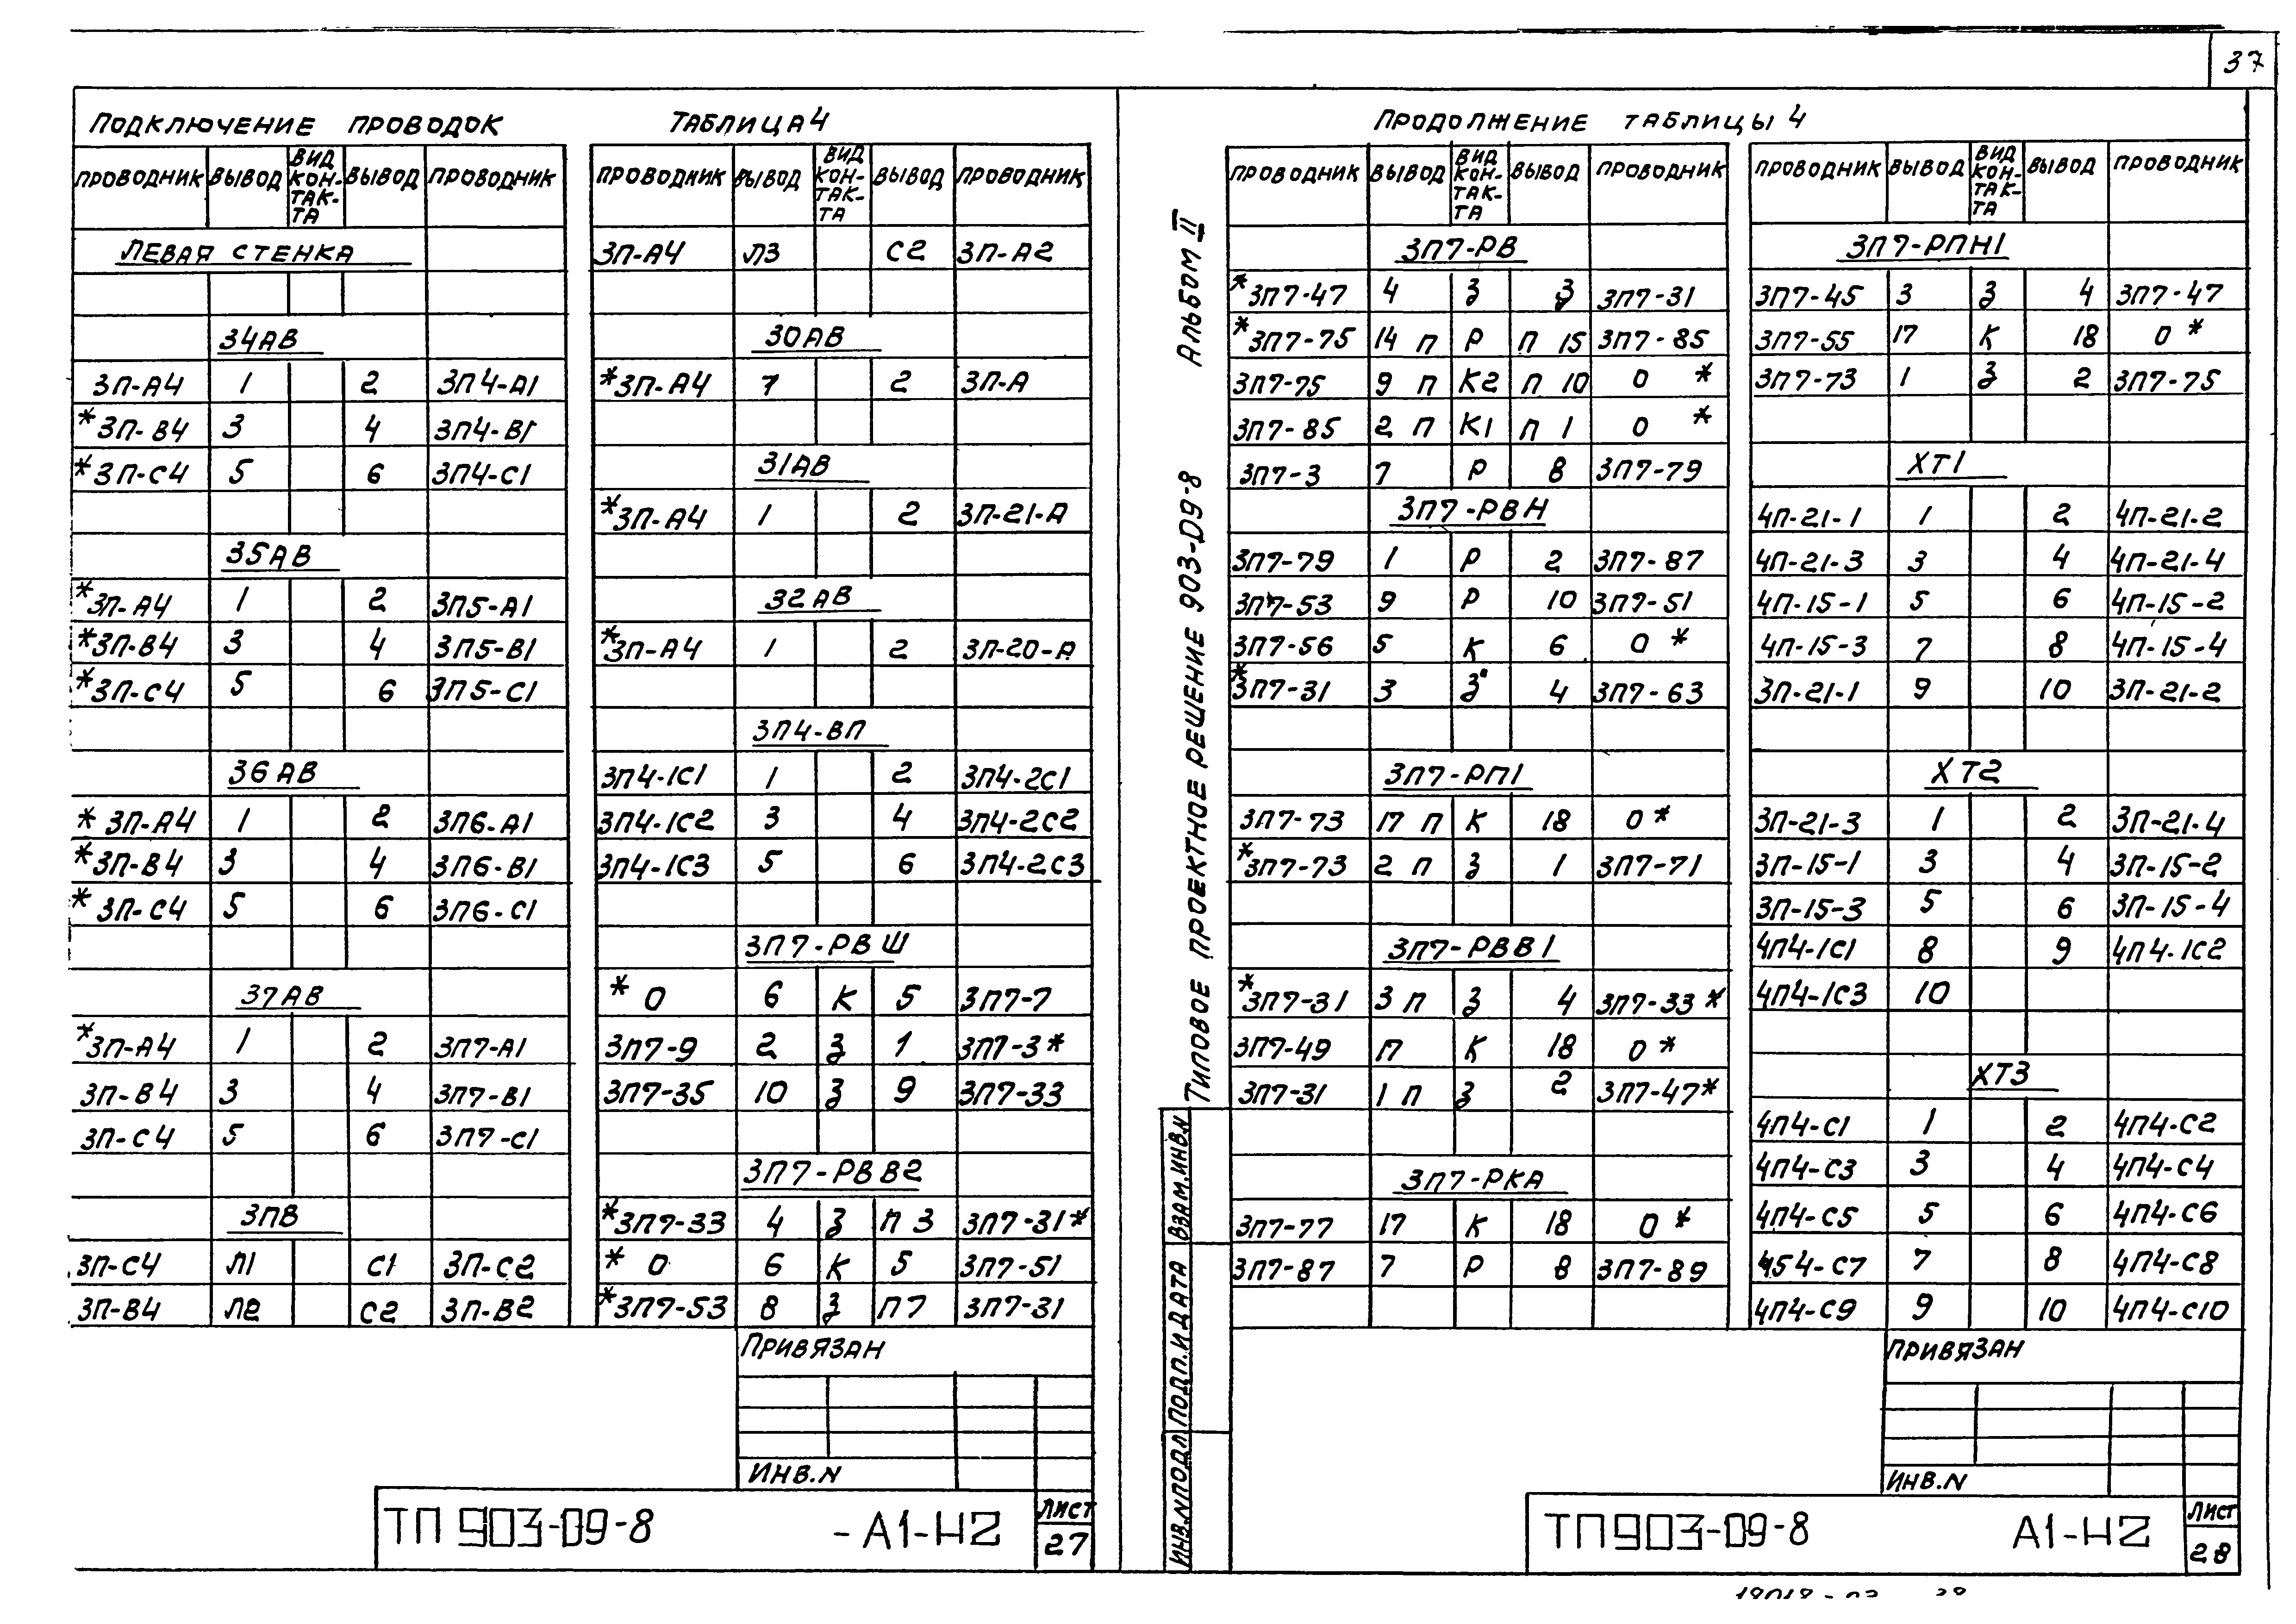 37
ПОДКЛЮЧЕНИЕ ПРОВОДОК ТАБЛИЦА 4
ПРОВОДНИК ВЫВОД ВИД КОН-ТАК-ТА ВЫВОД ПРОВОДНИК
ЛЕВАЯ СТЕНКА
34АВ
3П-А4 1 2 3П4-А1
*3П-В4 3 4 3П4-В1
*3П-С4 5 6 3П4-С1
35АВ
*3П-А4 1 2 3П5-А1
*3П-В4 3 4 3П5-В1
*3П-С4 5 6 3П5-С1
36АВ
*3П-А4 1 2 3П6-А1
*3П-В4 3 4 3П6-В1
*3П-С4 5 6 3П6-С1
37АВ
*3П-А4 1 2 3П7-А1
3П-В4 3 4 3П7-В1
3П-С4 5 6 3П7-С1
3ПВ
3П-С4 Л1 С1 3П-С2
3П-В4 Л2 С2 3П-В2
ПРОВОДНИК ВЫВОД ВИД КОН-ТАК-ТА ВЫВОД ПРОВОДНИК
3П-А4 Л3 С2 3П-А2
30АВ
*3П-А4 1 2 3П-А
31АВ
*3П-А4 1 2 3П-21-А
32АВ
*3П-А4 1 2 3П-20-А
3П4-ВП
3П4-1С1 1 2 3П4-2С1
3П4-1С2 3 4 3П4-2С2
3П4-1С3 5 6 3П4-2С3
3П7-РВШ
*0 6 К 5 3П7-7
3П7-9 2 З 1 3П7-3*
3П7-35 10 З 9 3П7-33
3П7-РВВ2
*3П7-33 4 З П 3 3П7-31*
*0 6 К 5 3П7-51
*3П7-53 8 З П7 3П7-31
ПРИВЯЗАН
ИНВ.N
ТП 903-09-8 -А1-Н2
ЛИСТ
27
ПРОДОЛЖЕНИЕ ТАБЛИЦЫ 4
АЛЬБОМ II
ТИПОВОЕ ПРОЕКТНОЕ РЕШЕНИЕ 903-09-8
ПРОВОДНИК ВЫВОД ВИД КОН-ТАК-ТА ВЫВОД ПРОВОДНИК
3П7-РВ
*3П7-47 4 З 3 3П7-31
*3П7-75 14 П Р П 15 3П7-85
3П7-75 9 П К2 П 10 0 *
3П7-85 2 П К1 П 1 0 *
3П7-3 7 Р 8 3П7-79
3П7-РВН
3П7-79 1 Р 2 3П7-87
3П7-53 9 Р 10 3П7-51
3П7-56 5 К 6 0 *
*3П7-31 3 З 4 3П7-63
3П7-РП1
3П7-73 17 П К 18 0 *
*3П7-73 2 П З 1 3П7-71
3П7-РВВ1
*3П7-31 3 П З 4 3П7-33*
3П7-49 17 К 18 0 *
3П7-31 1 П З 2 3П7-47*
3П7-РКА
3П7-77 17 К 18 0 *
3П7-87 7 Р 8 3П7-89
ПРОВОДНИК ВЫВОД ВИД КОН-ТАК-ТА ВЫВОД ПРОВОДНИК
3П7-РПН1
3П7-45 3 З 4 3П7-47
3П7-55 17 К 18 0 *
3П7-73 1 З 2 3П7-75
ХТ1
4П-21-1 1 2 4П-21-2
4П-21-3 3 4 4П-21-4
4П-15-1 5 6 4П-15-2
4П-15-3 7 8 4П-15-4
3П-21-1 9 10 3П-21-2
ХТ2
3П-21-3 1 2 3П-21-4
3П-15-1 3 4 3П-15-2
3П-15-3 5 6 3П-15-4
4П4-1С1 8 9 4П4-1С2
4П4-1С3 10
ХТ3
4П4-С1 1 2 4П4-С2
4П4-С3 3 4 4П4-С4
4П4-С5 5 6 4П4-С6
454-С7 7 8 4П4-С8
4П4-С9 9 10 4П4-С10
ПРИВЯЗАН
ИНВ.N
ИНВ.NПОДЛ ПОДП.И ДАТА ВЗАМ.ИНВ.N
ТП903-09-8 А1-Н2
ЛИСТ
28